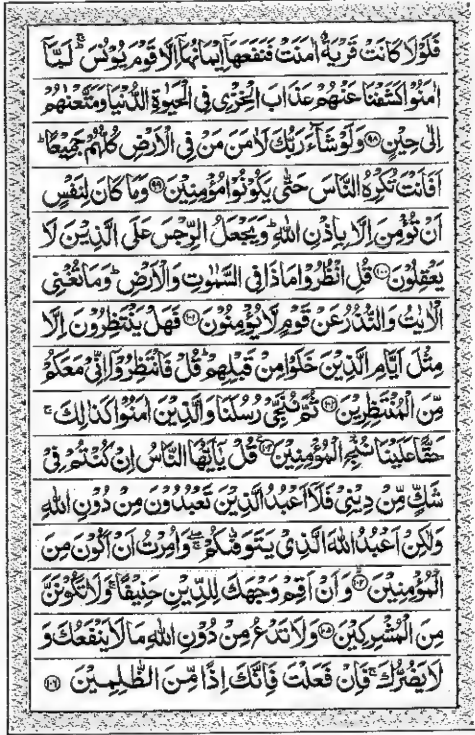 فَلَوْلَا كَانَتْ قَرْيَةٌ اٰمَنَتْ فَنَفَعَهَاۤ اِیْمَانُهَاۤ اِلَّا قَوْمَ یُوْنُسَ ؕ لَمَّاۤ
اٰمَنُوْا كَشَفْنَا عَنْهُمْ عَذَابَ الْخِزْیِ فِی الْحَیٰوةِ الدُّنْیَا وَمَتَّعْنٰهُمْ
اِلٰی حِیْنٍ ۝۹۸ وَلَوْ شَآءَ رَبُّكَ لَاٰمَنَ مَنْ فِی الْاَرْضِ كُلُّهُمْ جَمِیْعًا ؕ
اَفَاَنْتَ تُكْرِهُ النَّاسَ حَتّٰی یَكُوْنُوْا مُؤْمِنِیْنَ ۝۹۹ وَمَا كَانَ لِنَفْسٍ
اَنْ تُؤْمِنَ اِلَّا بِاِذْنِ اللّٰهِ ؕ وَیَجْعَلُ الرِّجْسَ عَلَی الَّذِیْنَ لَا
یَعْقِلُوْنَ ۝۱۰۰ قُلِ انْظُرُوْا مَاذَا فِی السَّمٰوٰتِ وَالْاَرْضِ ؕ وَمَا تُغْنِی
الْاٰیٰتُ وَالنُّذُرُ عَنْ قَوْمٍ لَّا یُؤْمِنُوْنَ ۝۱۰۱ فَهَلْ یَنْتَظِرُوْنَ اِلَّا
مِثْلَ اَیَّامِ الَّذِیْنَ خَلَوْا مِنْ قَبْلِهِمْ ؕ قُلْ فَانْتَظِرُوْۤا اِنِّیْ مَعَكُمْ
مِّنَ الْمُنْتَظِرِیْنَ ۝۱۰۲ ثُمَّ نُنَجِّیْ رُسُلَنَا وَالَّذِیْنَ اٰمَنُوْا كَذٰلِكَ ۚ
حَقًّا عَلَیْنَا نُنْجِ الْمُؤْمِنِیْنَ ۝۱۰۳ قُلْ یٰۤاَیُّهَا النَّاسُ اِنْ كُنْتُمْ فِیْ
شَكٍّ مِّنْ دِیْنِیْ فَلَاۤ اَعْبُدُ الَّذِیْنَ تَعْبُدُوْنَ مِنْ دُوْنِ اللّٰهِ
وَلٰكِنْ اَعْبُدُ اللّٰهَ الَّذِیْ یَتَوَفّٰىكُمْ ۚۖ وَاُمِرْتُ اَنْ اَكُوْنَ مِنَ
الْمُؤْمِنِیْنَ ۝۱۰۴ وَاَنْ اَقِمْ وَجْهَكَ لِلدِّیْنِ حَنِیْفًا ۚ وَلَا تَكُوْنَنَّ
مِنَ الْمُشْرِكِیْنَ ۝۱۰۵ وَلَا تَدْعُ مِنْ دُوْنِ اللّٰهِ مَا لَا یَنْفَعُكَ وَ
لَا یَضُرُّكَ ۚ فَاِنْ فَعَلْتَ فَاِنَّكَ اِذًا مِّنَ الظّٰلِمِیْنَ ۝۱۰۶